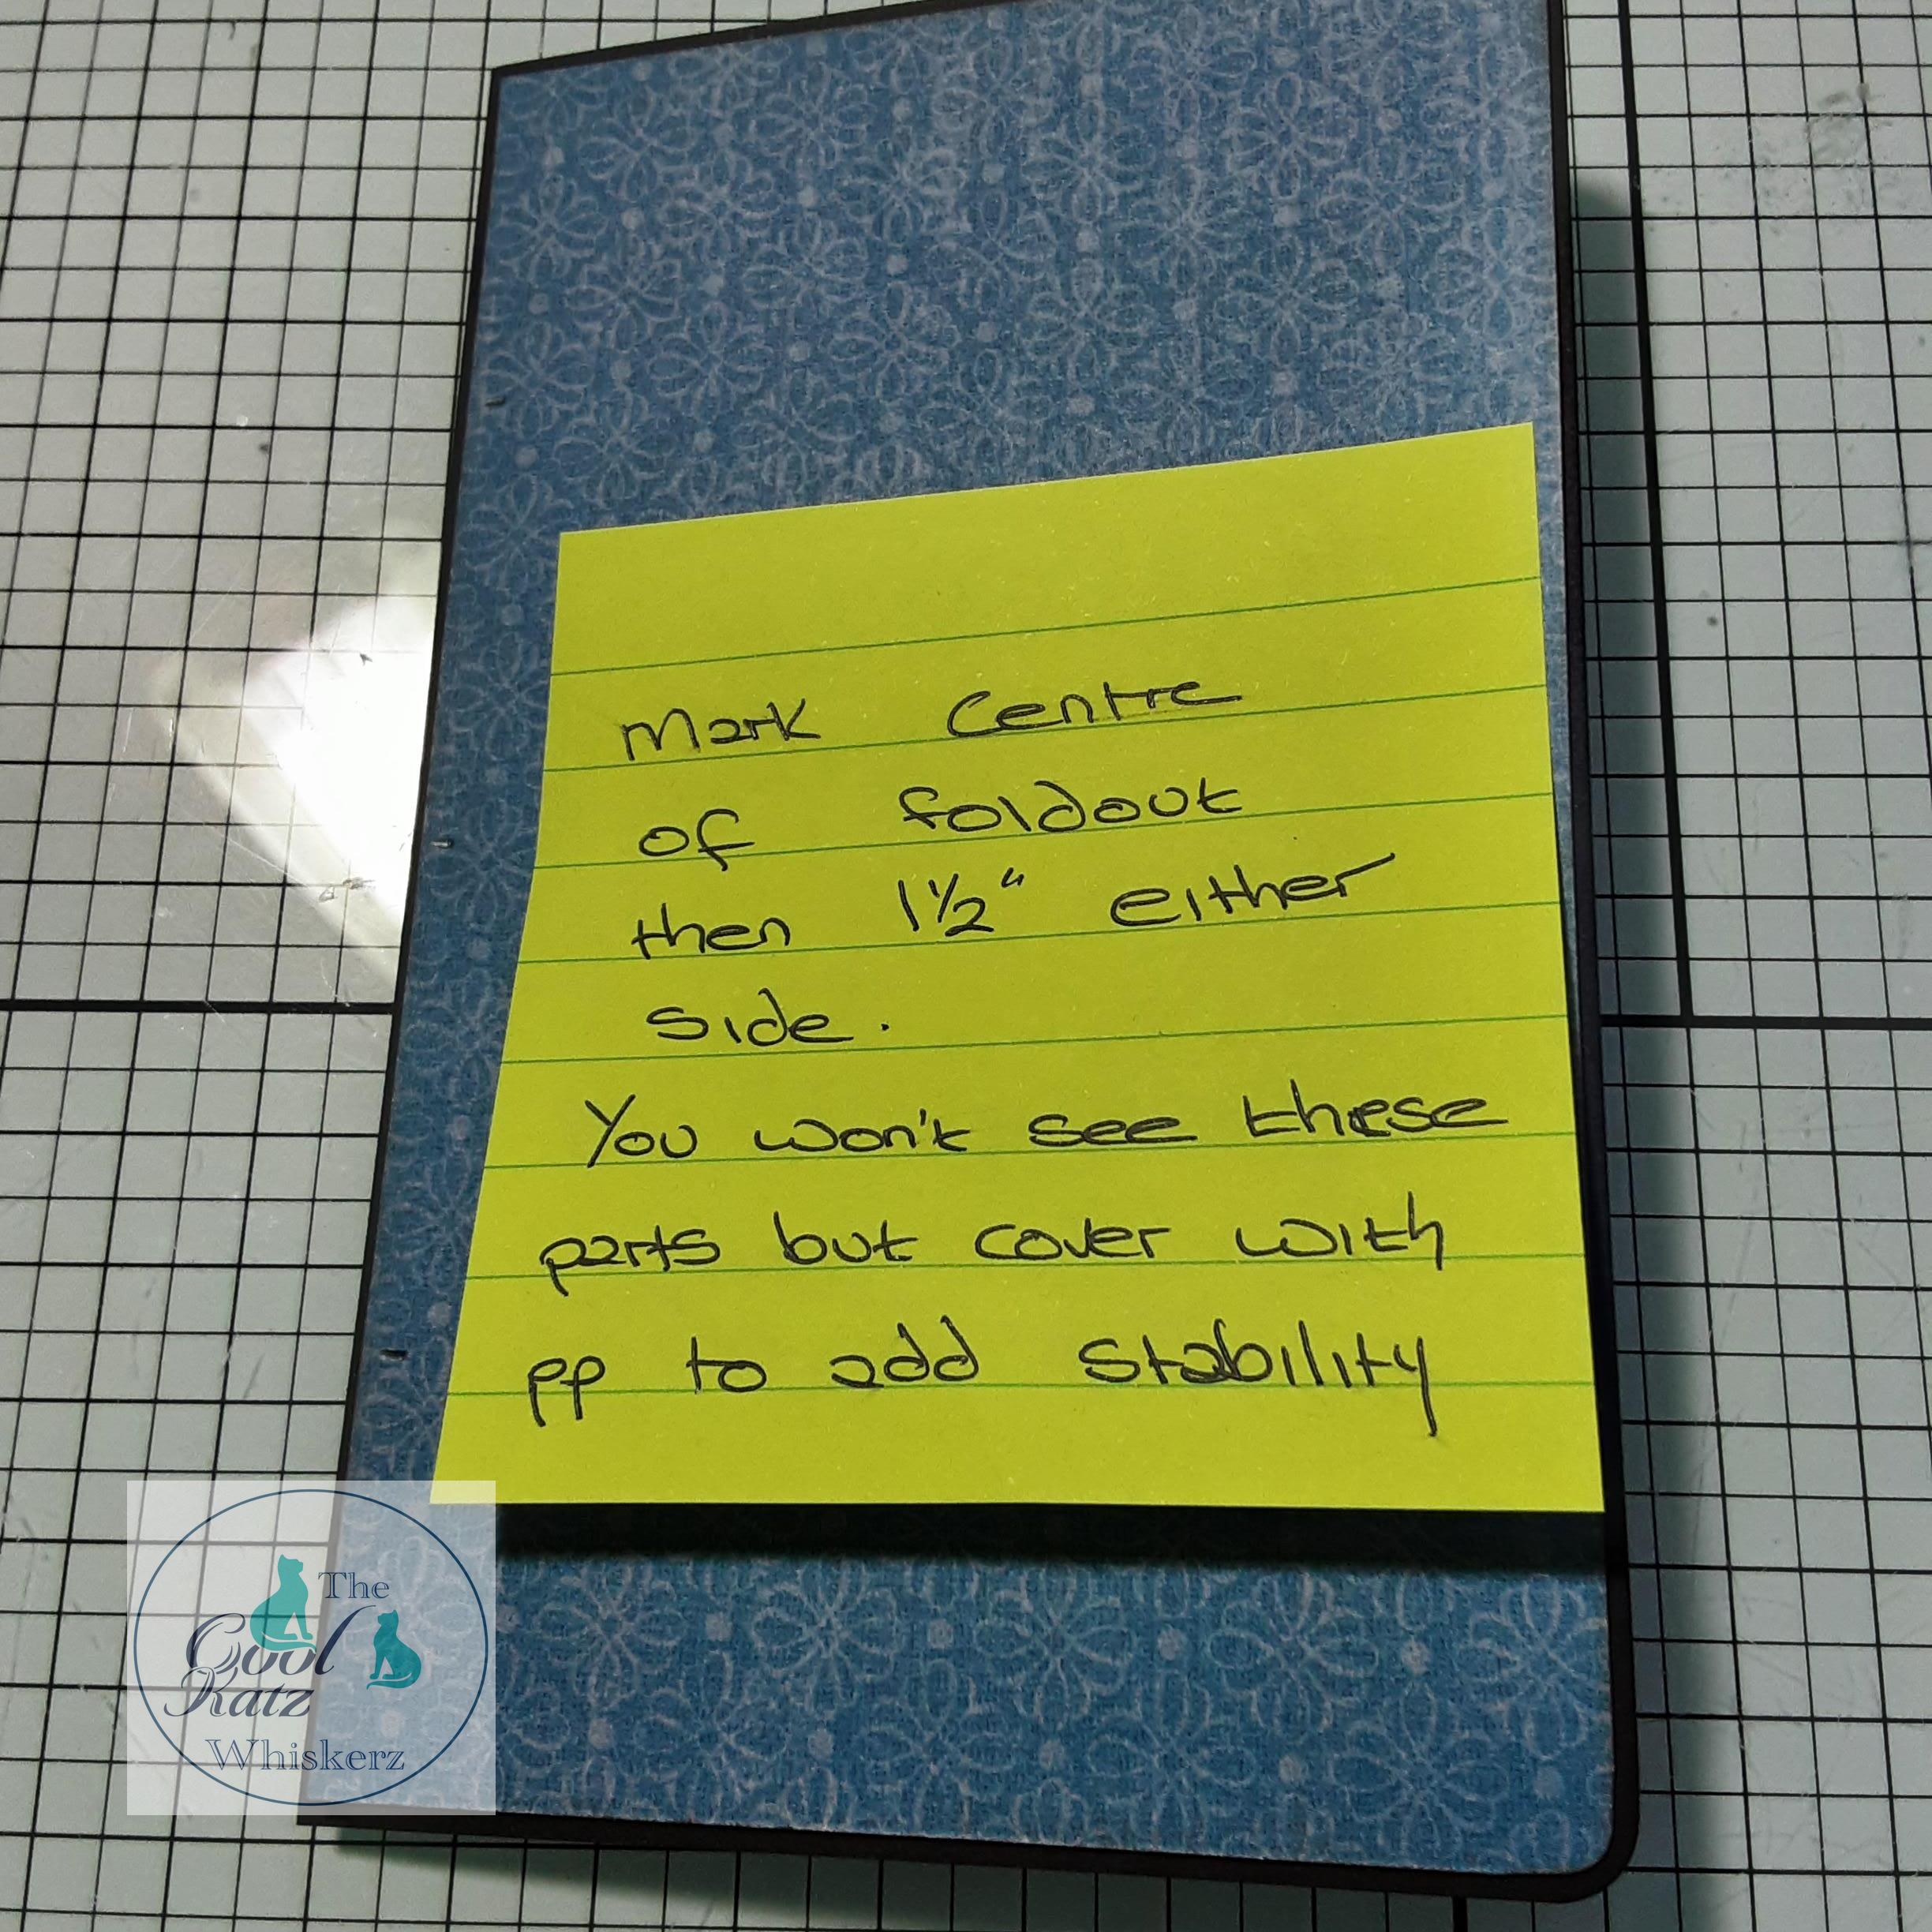 Mark Centre
of foldout
then 1½" either
side.
You won't see these
parts but cover with
pp to add stability
The
Cool
Katz
Whiskerz